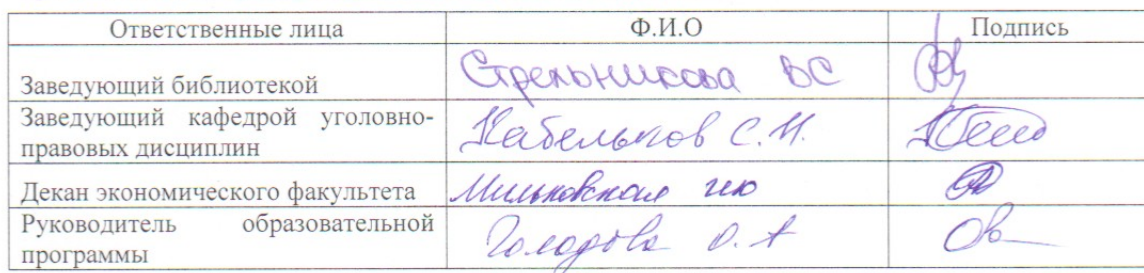 Ответственные лица Ф.И.О Подпись
Заведующий библиотекой Стрельникова ВС
Заведующий кафедрой уголовно-
правовых дисциплин Кабельков С.Н.
Декан экономического факультета Мильковская
Руководитель образовательной
программы Голодова О.А